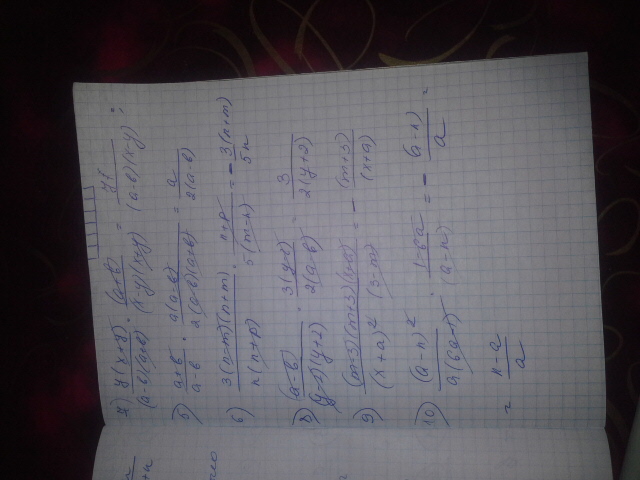 7) y(x+y)/(a-b)(a+b) · (a+b)/(x-y)(x+y) = y/(a-b)(x-y) ;
5) a+b/a-b · a(a-b)/2(a-b)(a+b) = a/2(a-b)
6) 3(n-m)(n+m)/n(n+p) · n+p/5(m-n) = - 3(n+m)/5n
8) (a-b)/(y-2)(y+2) · 3(y-2)/2(a-b) = 3/2(y+2)
9) (m-3)(m+3)(x+a)/(x+a)² (3-m) = - (m+3)/(x+a)
10) (a-n)²/a(6a-1) · 1-6a/(a-n) = - (a-n)/a =
= n-a/a